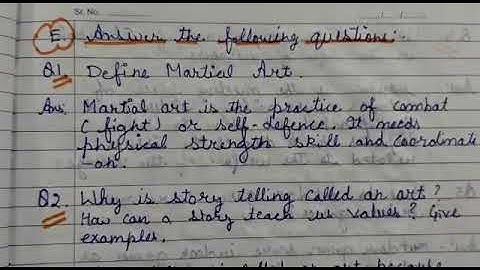 Sr. No.
E. Answer the following questions:-
Q1 Define Martial Art.
Ans: Martial art is the practice of combat
( fight) or self-defence. It needs
physical strength skill and coordinate
-on.
Q2. Why is story telling called an art?
How can a story teach us values? Give
examples.